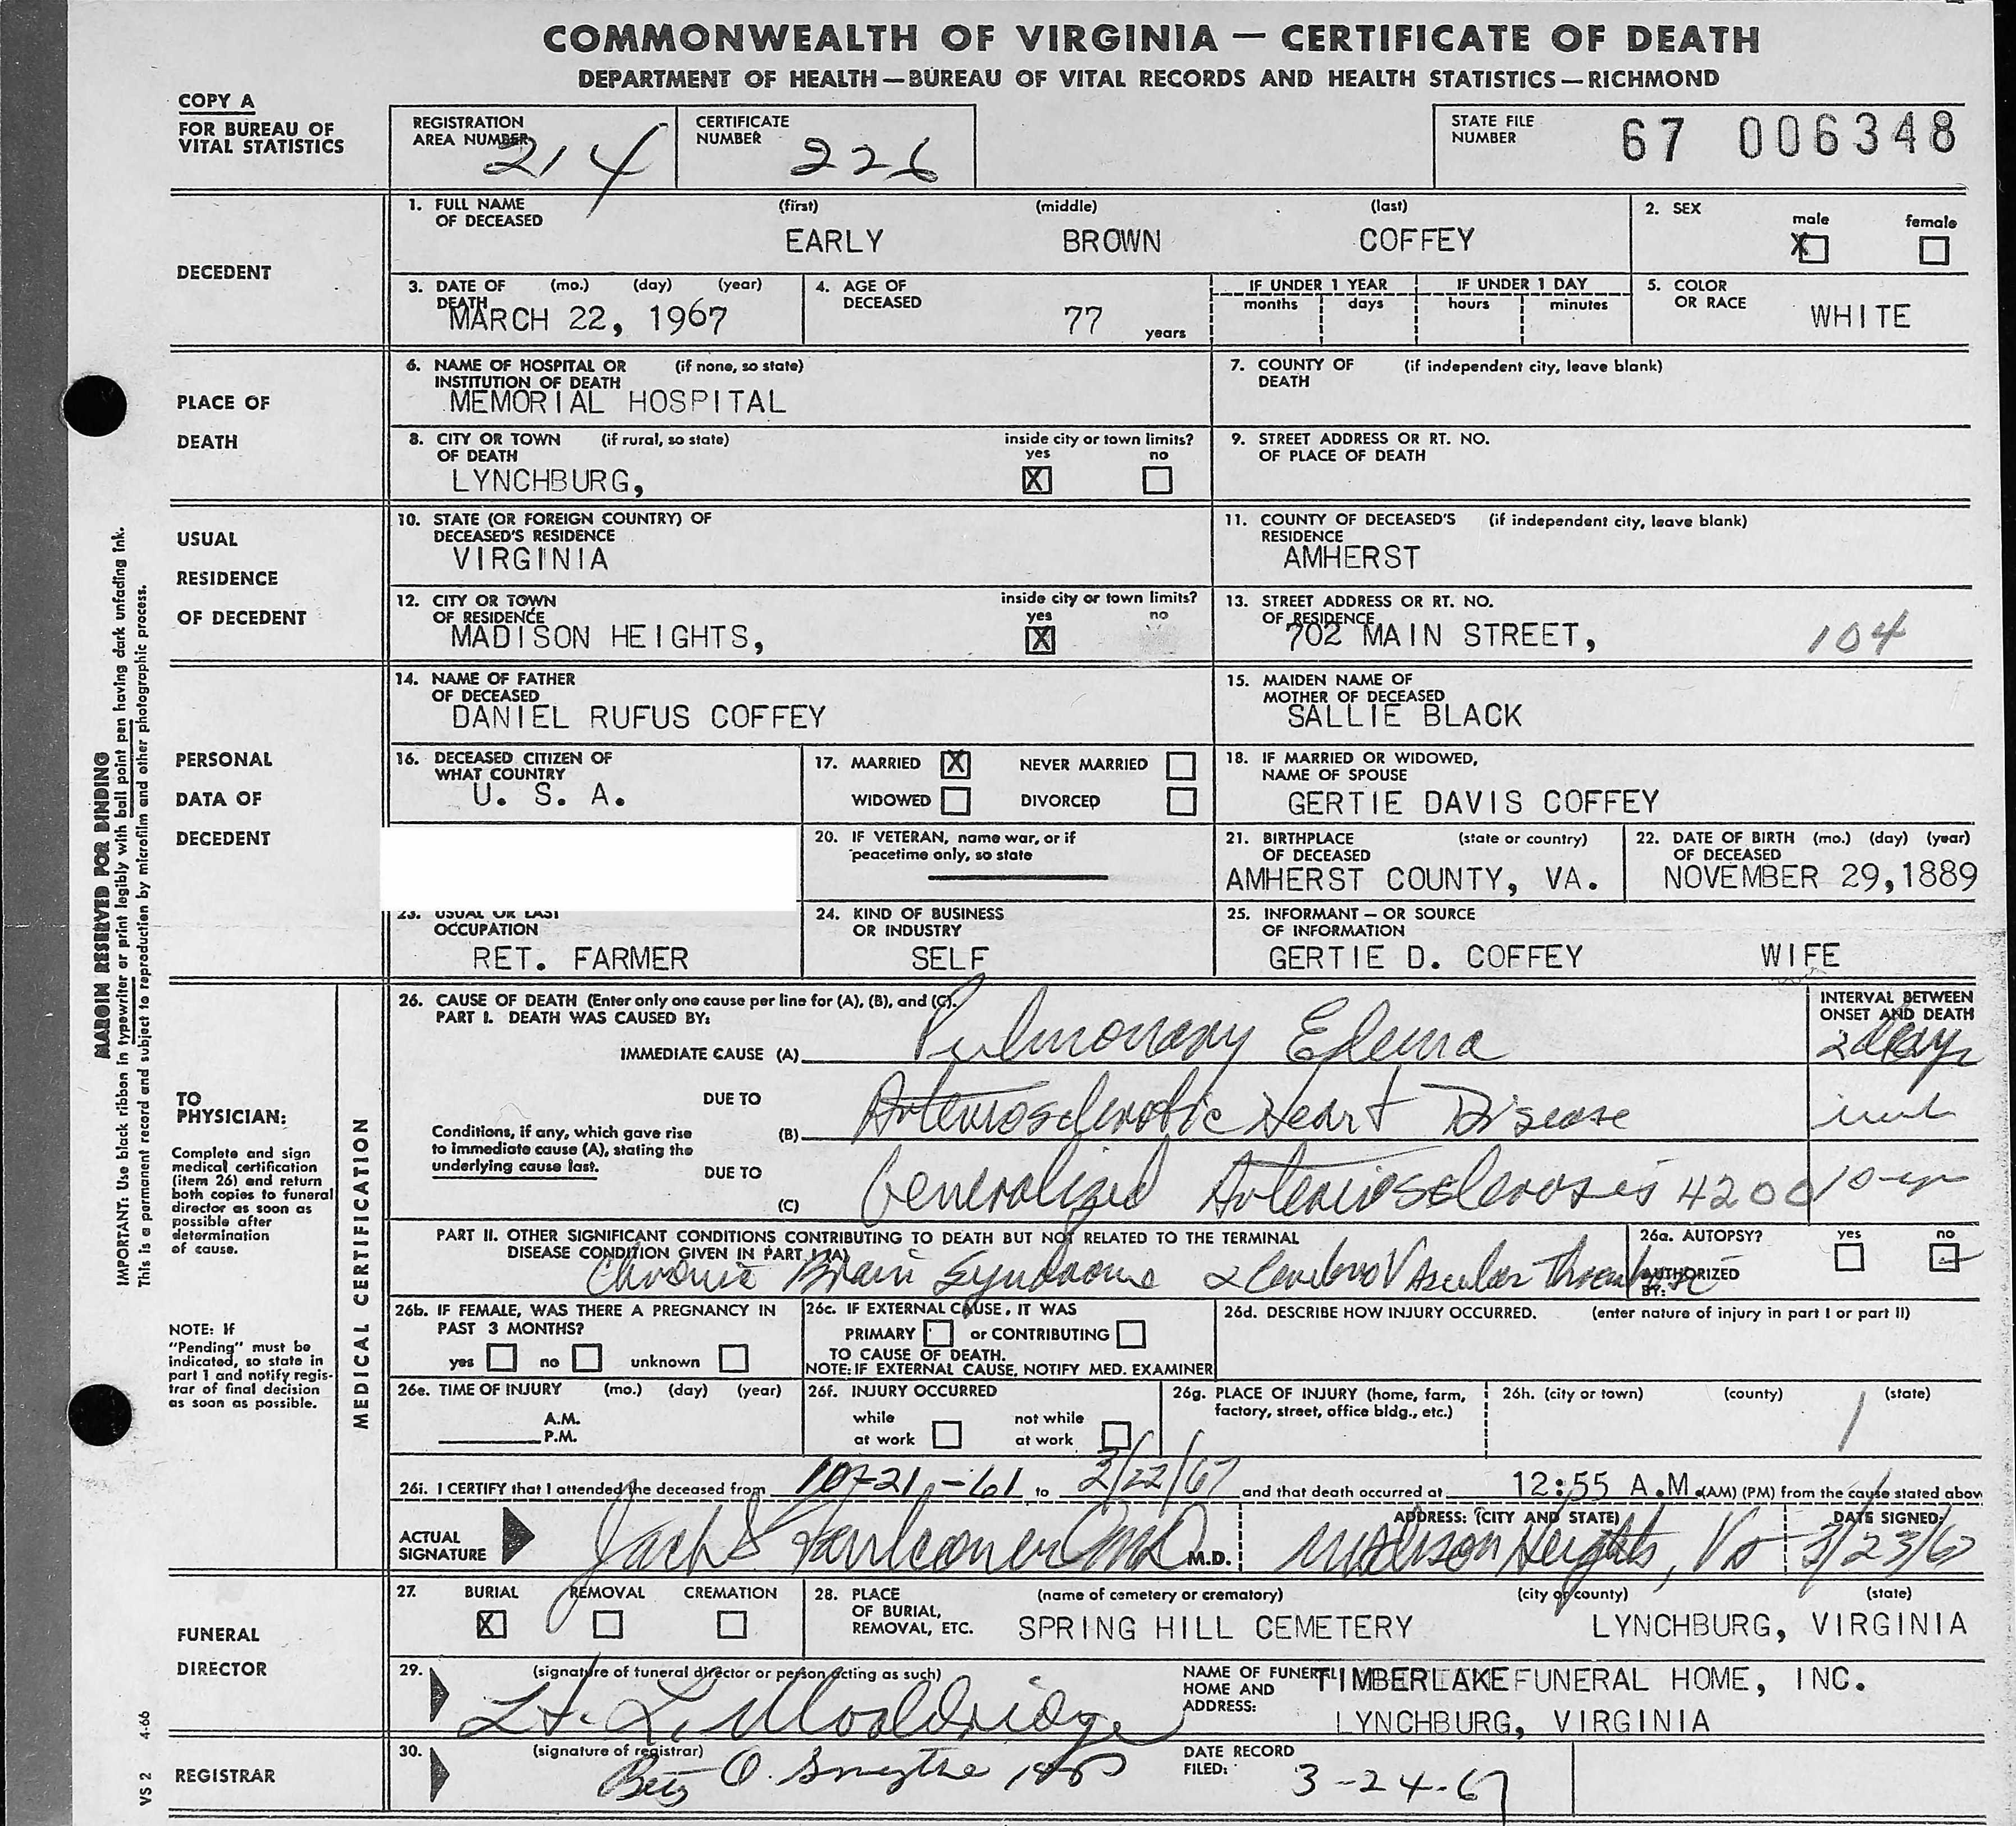 COMMONWEALTH OF VIRGINIA — CERTIFICATE OF DEATH
DEPARTMENT OF HEALTH—BUREAU OF VITAL RECORDS AND HEALTH STATISTICS—RICHMOND
COPY A
FOR BUREAU OF
VITAL STATISTICS
REGISTRATION
AREA NUMBER
214
CERTIFICATE
NUMBER
226
STATE FILE
NUMBER
67 006348
DECEDENT
1. FULL NAME
OF DECEASED
(first) (middle) (last)
EARLY BROWN COFFEY
2. SEX
male female
X
3. DATE OF (mo.) (day) (year)
DEATH
MARCH 22, 1967
4. AGE OF
DECEASED
77 years
IF UNDER 1 YEAR
months days
IF UNDER 1 DAY
hours minutes
5. COLOR
OR RACE
WHITE
PLACE OF
DEATH
6. NAME OF HOSPITAL OR (if none, so state)
INSTITUTION OF DEATH
MEMORIAL HOSPITAL
7. COUNTY OF (if independent city, leave blank)
DEATH
8. CITY OR TOWN (if rural, so state)
OF DEATH
LYNCHBURG,
inside city or town limits?
yes no
X
9. STREET ADDRESS OR RT. NO.
OF PLACE OF DEATH
USUAL
RESIDENCE
OF DECEDENT
10. STATE (OR FOREIGN COUNTRY) OF
DECEASED'S RESIDENCE
VIRGINIA
11. COUNTY OF DECEASED'S (if independent city, leave blank)
RESIDENCE
AMHERST
12. CITY OR TOWN
OF RESIDENCE
MADISON HEIGHTS,
inside city or town limits?
yes no
X
13. STREET ADDRESS OR RT. NO.
OF RESIDENCE
702 MAIN STREET, 104
PERSONAL
DATA OF
DECEDENT
14. NAME OF FATHER
OF DECEASED
DANIEL RUFUS COFFEY
15. MAIDEN NAME OF
MOTHER OF DECEASED
SALLIE BLACK
16. DECEASED CITIZEN OF
WHAT COUNTRY
U. S. A.
17. MARRIED X NEVER MARRIED
WIDOWED DIVORCED
18. IF MARRIED OR WIDOWED,
NAME OF SPOUSE
GERTIE DAVIS COFFEY
20. IF VETERAN, name war, or if
peacetime only, so state
21. BIRTHPLACE (state or country)
OF DECEASED
AMHERST COUNTY, VA.
22. DATE OF BIRTH (mo.) (day) (year)
OF DECEASED
NOVEMBER 29,1889
23. USUAL OR LAST
OCCUPATION
RET. FARMER
24. KIND OF BUSINESS
OR INDUSTRY
SELF
25. INFORMANT — OR SOURCE
OF INFORMATION
GERTIE D. COFFEY WIFE
TO
PHYSICIAN:
Complete and sign
medical certification
(item 26) and return
both copies to funeral
director as soon as
possible after
determination
of cause.
NOTE: If
"Pending" must be
indicated, so state in
part 1 and notify regis-
trar of final decision
as soon as possible.
MEDICAL CERTIFICATION
26. CAUSE OF DEATH (Enter only one cause per line for (A), (B), and (C).
PART I. DEATH WAS CAUSED BY:
INTERVAL BETWEEN
ONSET AND DEATH
IMMEDIATE CAUSE (A) Pulmonary Edema 2 days
DUE TO
Conditions, if any, which gave rise
to immediate cause (A), stating the
underlying cause last.
(B) Arteriosclerotic Heart Disease
DUE TO
(C) Generalized Arteriosclerosis 4200 10-yr
PART II. OTHER SIGNIFICANT CONDITIONS CONTRIBUTING TO DEATH BUT NOT RELATED TO THE TERMINAL
DISEASE CONDITION GIVEN IN PART I (A)
Chronic Brain Syndrome & Cerebro Vascular
26a. AUTOPSY? yes no
AUTHORIZED
BY:
26b. IF FEMALE, WAS THERE A PREGNANCY IN
PAST 3 MONTHS?
yes no unknown
26c. IF EXTERNAL CAUSE, IT WAS
PRIMARY or CONTRIBUTING
TO CAUSE OF DEATH.
NOTE: IF EXTERNAL CAUSE, NOTIFY MED. EXAMINER
26d. DESCRIBE HOW INJURY OCCURRED. (enter nature of injury in part I or part II)
26e. TIME OF INJURY (mo.) (day) (year)
A.M.
P.M.
26f. INJURY OCCURRED
while not while
at work at work
26g. PLACE OF INJURY (home, farm,
factory, street, office bldg., etc.)
26h. (city or town) (county) (state)
1
26i. I CERTIFY that I attended the deceased from 10-21-61 to 3/22/67 and that death occurred at 12:55 A.M. (AM) (PM) from the cause stated above
ACTUAL
SIGNATURE
Jack S Faulconer MD M.D.
ADDRESS: (CITY AND STATE)
Madison Heights, Va
DATE SIGNED:
3/23/67
FUNERAL
DIRECTOR
27. BURIAL REMOVAL CREMATION
X
28. PLACE
OF BURIAL,
REMOVAL, ETC.
(name of cemetery or crematory) (city or county) (state)
SPRING HILL CEMETERY LYNCHBURG, VIRGINIA
29. (signature of funeral director or person acting as such)
L. Wooldridge
NAME OF FUNERAL
HOME AND
ADDRESS:
TIMBERLAKE FUNERAL HOME, INC.
LYNCHBURG, VIRGINIA
REGISTRAR
30. (signature of registrar)
O. Smythe
DATE RECORD
FILED:
3-24-67
MARGIN RESERVED FOR BINDING
IMPORTANT: Use black ribbon in typewriter or print legibly with ball point pen having dark unfading ink.
This is a permanent record and subject to reproduction by microfilm and other photographic process.
VS 2 4-66